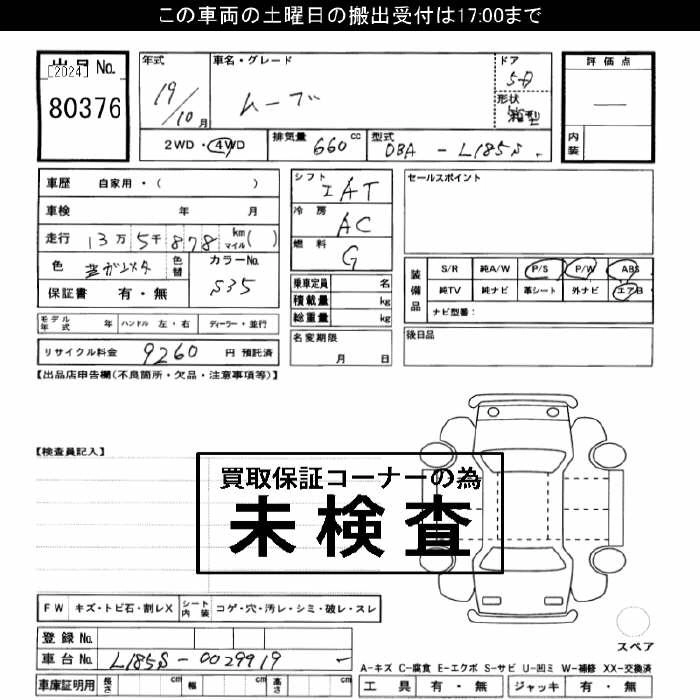 この車両の土曜日の搬出受付は17:00まで
出品 No.
[2024]
80376
年式
19/10 月
車名・グレード
ムーブ
ドア
5D
形状
箱型
評価点
—
内装
2WD・4WD
排気量 660 cc
型式 DBA - L185S
車歴 自家用・( )
車検 年 月
走行 13万 5千 878 km マイル ( )
色
色替
カラーNo.
S35
保証書 有・無
モデル年式 年 ハンドル 左・右 ディーラー・並行
リサイクル料金 9260 円 預託済
シフト IAT
冷房 AC
燃料 G
乗車定員 名
積載量 kg
総重量 kg
名変期限
月 日
セールスポイント
装備品
S/R 純A/W P/S P/W ABS
純TV 純ナビ 革シート 外ナビ エアB
ナビ型番：
後日品
【出品店申告欄(不良箇所・欠品・注意事項等)】
【検査員記入】
買取保証コーナーの為
未検査
FW キズ・トビ石・割レX シート内装 コゲ・穴・汚レ・シミ・破レ・スレ
登録 No.
車台 No. L185S-0029919
車庫証明用 長さ cm 幅 cm 高さ cm
スペア
A-キズ C-腐食 E-エクボ S-サビ U-凹ミ W-補修 XX-交換済
工具 有・無 ジャッキ 有・無